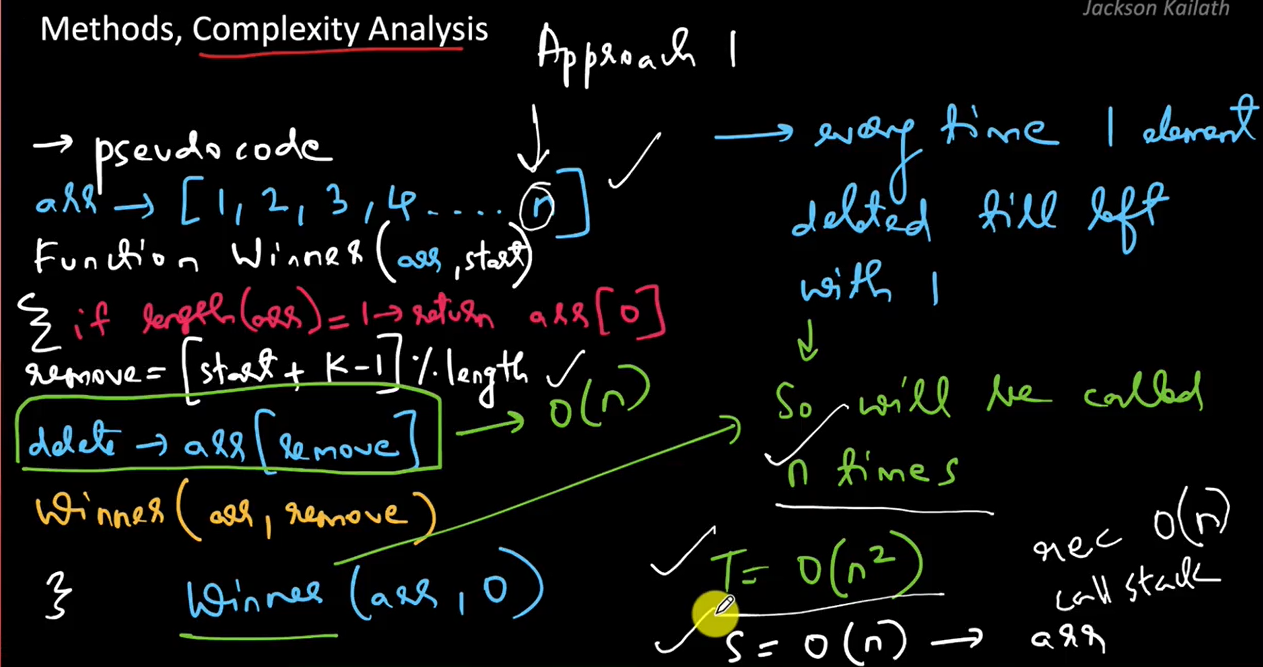 Methods, Complexity Analysis
Jackson Kailath
Approach 1
→ pseudo code
arr → [1, 2, 3, 4 ..... n]
Function Winner(arr, start)
{ if length(arr) = 1 → return arr[0]
remove = [start + K - 1] % length
delete → arr[remove] → O(n)
Winner(arr, remove)
}
Winner(arr, 0)
→ every time 1 element
deleted till left
with 1
↓
So will be called
n times
T = O(n²)
S = O(n) → arr
rec O(n)
call stack